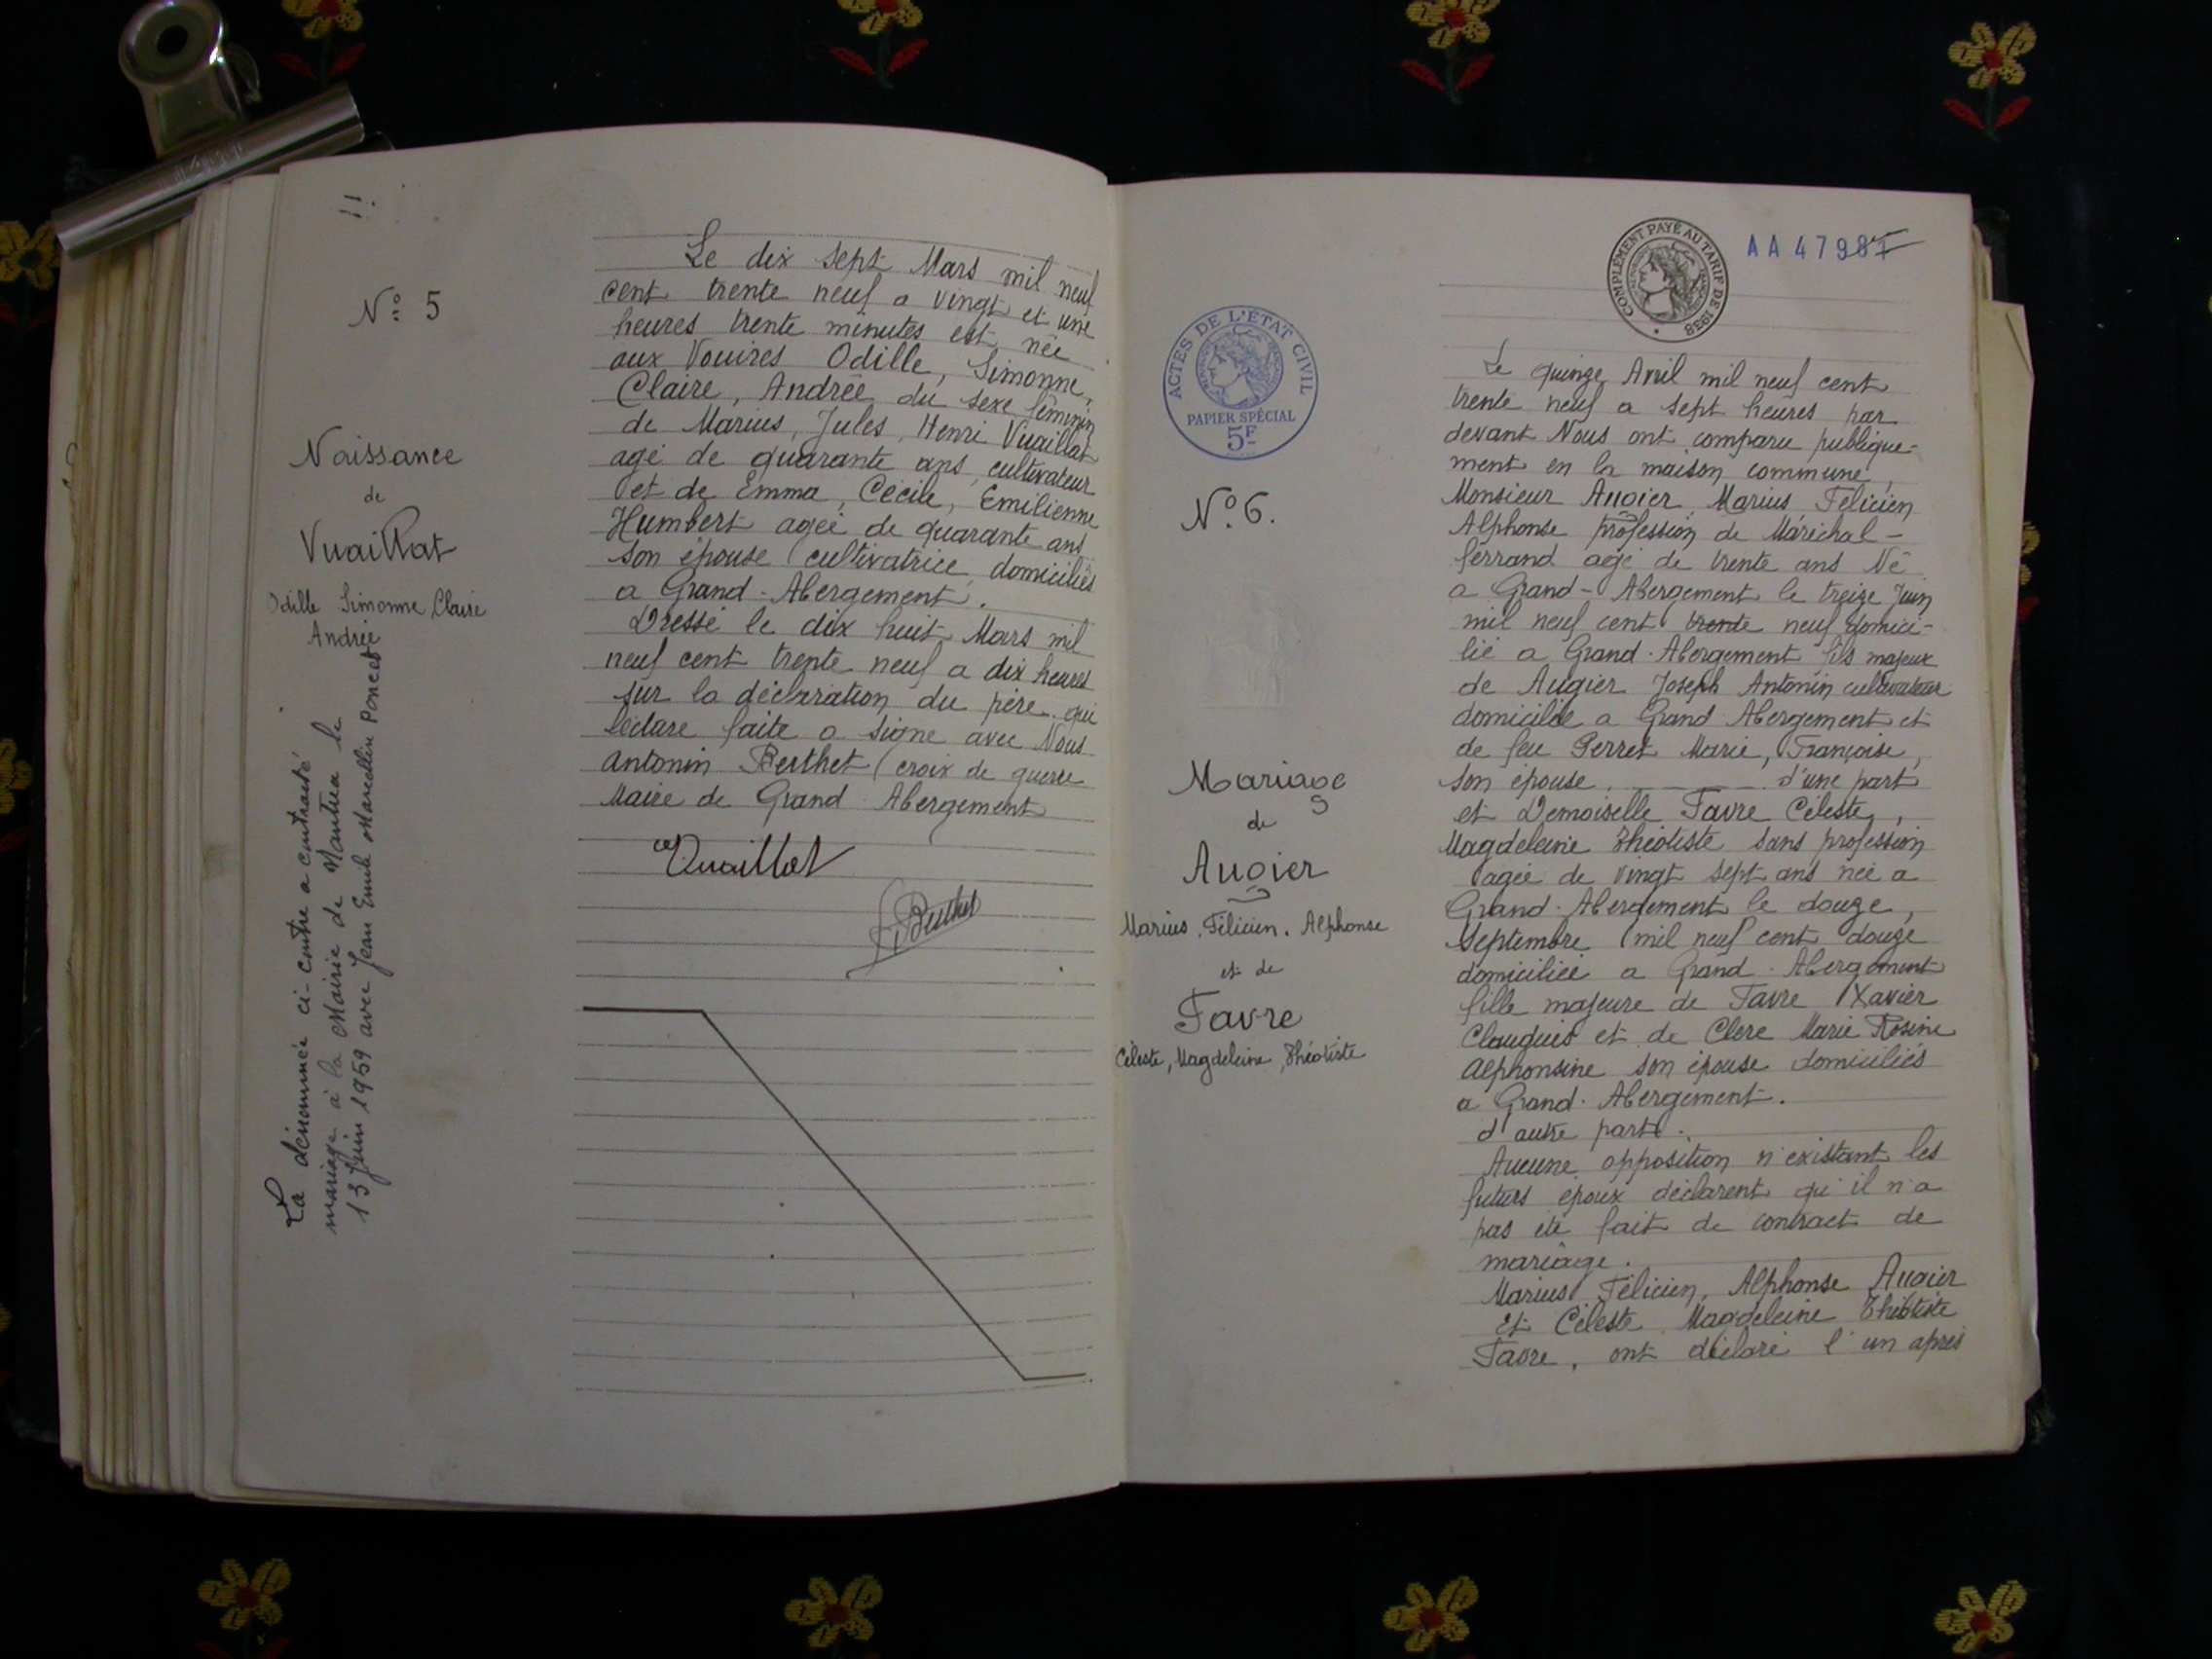 11.
N° 5
Naissance
de
Vuaillat
Odille Simonne Claire
Andrée
La dénommée ci-contre a contracté
mariage à la Mairie de Nantua le
13 Juin 1959 avec Jean Emile Marcellin Poncet
Le dix sept Mars mil neuf
cent trente neuf a vingt et une
heures trente minutes est née
aux Vouires Odille, Simonne,
Claire, Andrée, du sexe féminin
de Marius, Jules, Henri Vuaillat
agé de quarante ans, cultivateur
et de Emma, Cécile, Emilienne
Humbert agée de quarante ans
son épouse cultivatrice, domiciliés
a Grand-Abergement.
Dressé le dix huit Mars mil
neuf cent trente neuf a dix heures
sur la déclaration du père qui
lecture faite a signé avec Nous
Antonin Berthet (croix de guerre
Maire de Grand Abergement
Vuaillat
Berthet
COMPLÉMENT PAYÉ AU TARIF DE 1938
AA 47987
ACTES DE L'ÉTAT CIVIL
PAPIER SPÉCIAL
5F
N° 6.
Mariage
de
Augier
Marius, Félicien, Alphonse
et de
Favre
Céleste, Magdeleine, Théotiste
Le quinze Avril mil neuf cent
trente neuf a sept heures par
devant Nous ont comparu publique-
ment en la maison commune,
Monsieur Augier, Marius, Félicien
Alphonse profession de Maréchal-
ferrand agé de trente ans Né
a Grand-Abergement le treize Juin
mil neuf cent trente neuf domici-
lié a Grand-Abergement fils majeur
de Augier Joseph Antonin cultivateur
domicilié a Grand Abergement et
de feu Perret Marie, Françoise,
son épouse, d'une part
et Demoiselle Favre Céleste,
Magdeleine Théotiste sans profession
agée de vingt sept ans née a
Grand-Abergement le douze,
Septembre mil neuf cent douze
domiciliée a Grand-Abergement
fille majeure de Favre Xavier
et de Clerc Marie Rosine
Alphonsine son épouse domiciliés
a Grand-Abergement.
d'autre part.
Aucune opposition n'existant les
futurs époux déclarent qu'il n'a
pas été fait de contract de
mariage.
Marius Félicien, Alphonse Augier
et Céleste Magdeleine Théotiste
Favre, ont déclaré l'un après